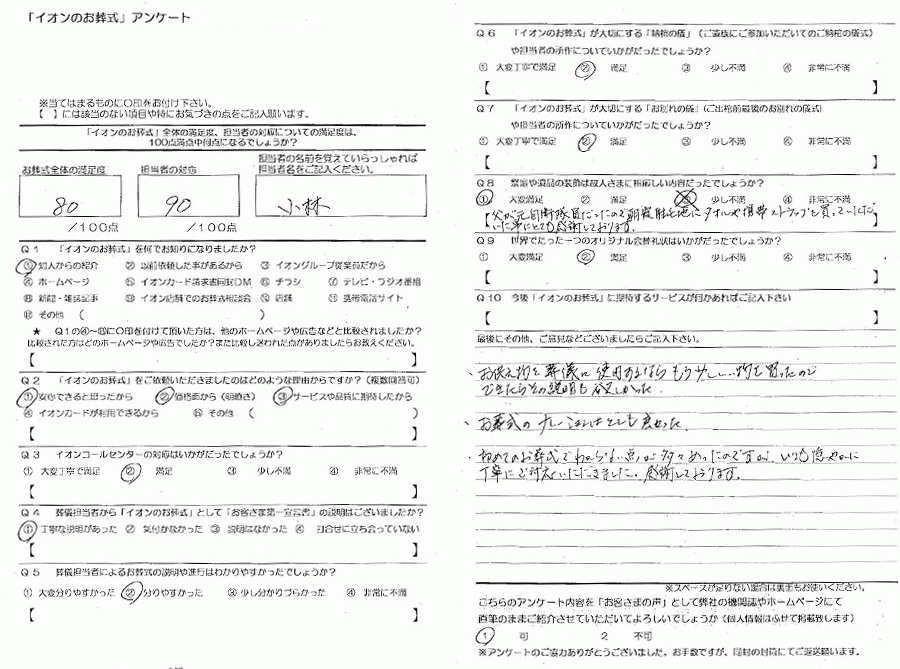 「イオンのお葬式」アンケート
※当てはまるものに○印をお付け下さい。
【 】には該当のない項目や特にお気づきの点をご記入願います。
「イオンのお葬式」全体の満足度、担当者の対応についての満足度は、
100点満点中何点になるでしょうか?
お葬式全体の満足度
担当者の対応
担当者の名前を覚えていらっしゃれば
担当者名をご記入ください。
80
90
小林
/100点
/100点
Q1 「イオンのお葬式」を何でお知りになりましたか?
① 知人からの紹介 ② 以前依頼した事があるから ③ イオングループ従業員だから
④ ホームページ ⑤ イオンカード請求書同封DM ⑥ チラシ ⑦ テレビ・ラジオ番組
⑧ 新聞・雑誌記事 ⑨ イオン店舗でのお葬式相談会 ⑩ 店舗 ⑪ 携帯電話サイト
⑫ その他 ( )
★ Q1の④~⑪に○印を付けて頂いた方は、他のホームページや広告などと比較されましたか?
比較された方はどのホームページや広告でしたか?また比較し迷われた点がありましたらお教えください。
【 】
Q2 「イオンのお葬式」をご依頼いただきましたのはどのような理由からですか?(複数回答可)
① 安心できると思ったから ② 価格面から(明瞭さ) ③ サービスや品質に期待したから
④ イオンカードが利用できるから ⑤ その他 ( )
【 】
Q3 イオンコールセンターの対応はいかがだったでしょうか?
① 大変丁寧で満足 ② 満足 ③ 少し不満 ④ 非常に不満
【 】
Q4 葬儀担当者から「イオンのお葬式」として「お客さま第一宣言書」の説明はございましたか?
① 丁寧な説明があった ② 気付かなかった ③ 説明はなかった ④ 打合せに立ち会っていない
【 】
Q5 葬儀担当者によるお葬式の説明や進行はわかりやすかったでしょうか?
① 大変分りやすかった ② 分りやすかった ③ 少し分かりづらかった ④ 非常に不満
【 】
Q6 「イオンのお葬式」が大切にする「納棺の儀」(ご遺族にご参加いただいてのご納棺の儀式)
や担当者の所作についていかがだったでしょうか?
① 大変丁寧で満足 ② 満足 ③ 少し不満 ④ 非常に不満
【 】
Q7 「イオンのお葬式」が大切にする「お別れの儀」(ご出棺前最後のお別れの儀式)
や担当者の所作についていかがだったでしょうか?
① 大変丁寧で満足 ② 満足 ③ 少し不満 ④ 非常に不満
【 】
Q8 祭壇や遺品の装飾は故人さまに相応しい内容だったでしょうか?
① 大変満足 ② 満足 ③ 少し不満 ④ 非常に不満
【父が元自衛隊員だったので 他にタオルや携帯ストラップを買っていただ
いた事にとても感謝しております。 】
Q9 世界でたった一つのオリジナル会葬礼状はいかがだったでしょうか?
① 大変満足 ② 満足 ③ 少し不満 ④ 非常に不満
【 】
Q10 今後「イオンのお葬式」に期待するサービスが何かあればご記入下さい
【 】
最後にその他、ご意見などございましたらご記入下さい。
・お供え物を葬儀に使用するならもう少しいい物を買ったので
できたらその説明も欲しかった
・お葬式の ナレーションはとても良かった
・初めてのお葬式でわからない点が多々あったのですが、いつも穏やかに
丁寧にご対応いただきました。感謝しております。
※スペースが足りない場合は裏面もお使いください。
こちらのアンケート内容を「お客さまの声」として弊社の機関誌やホームページにて
直筆のままご紹介させていただいてよろしいでしょうか(個人情報はふせて掲載致します)
1 可 2 不可
※アンケートのご協力ありがとうございました。お手数ですが、同封の封筒にてご返送願います。